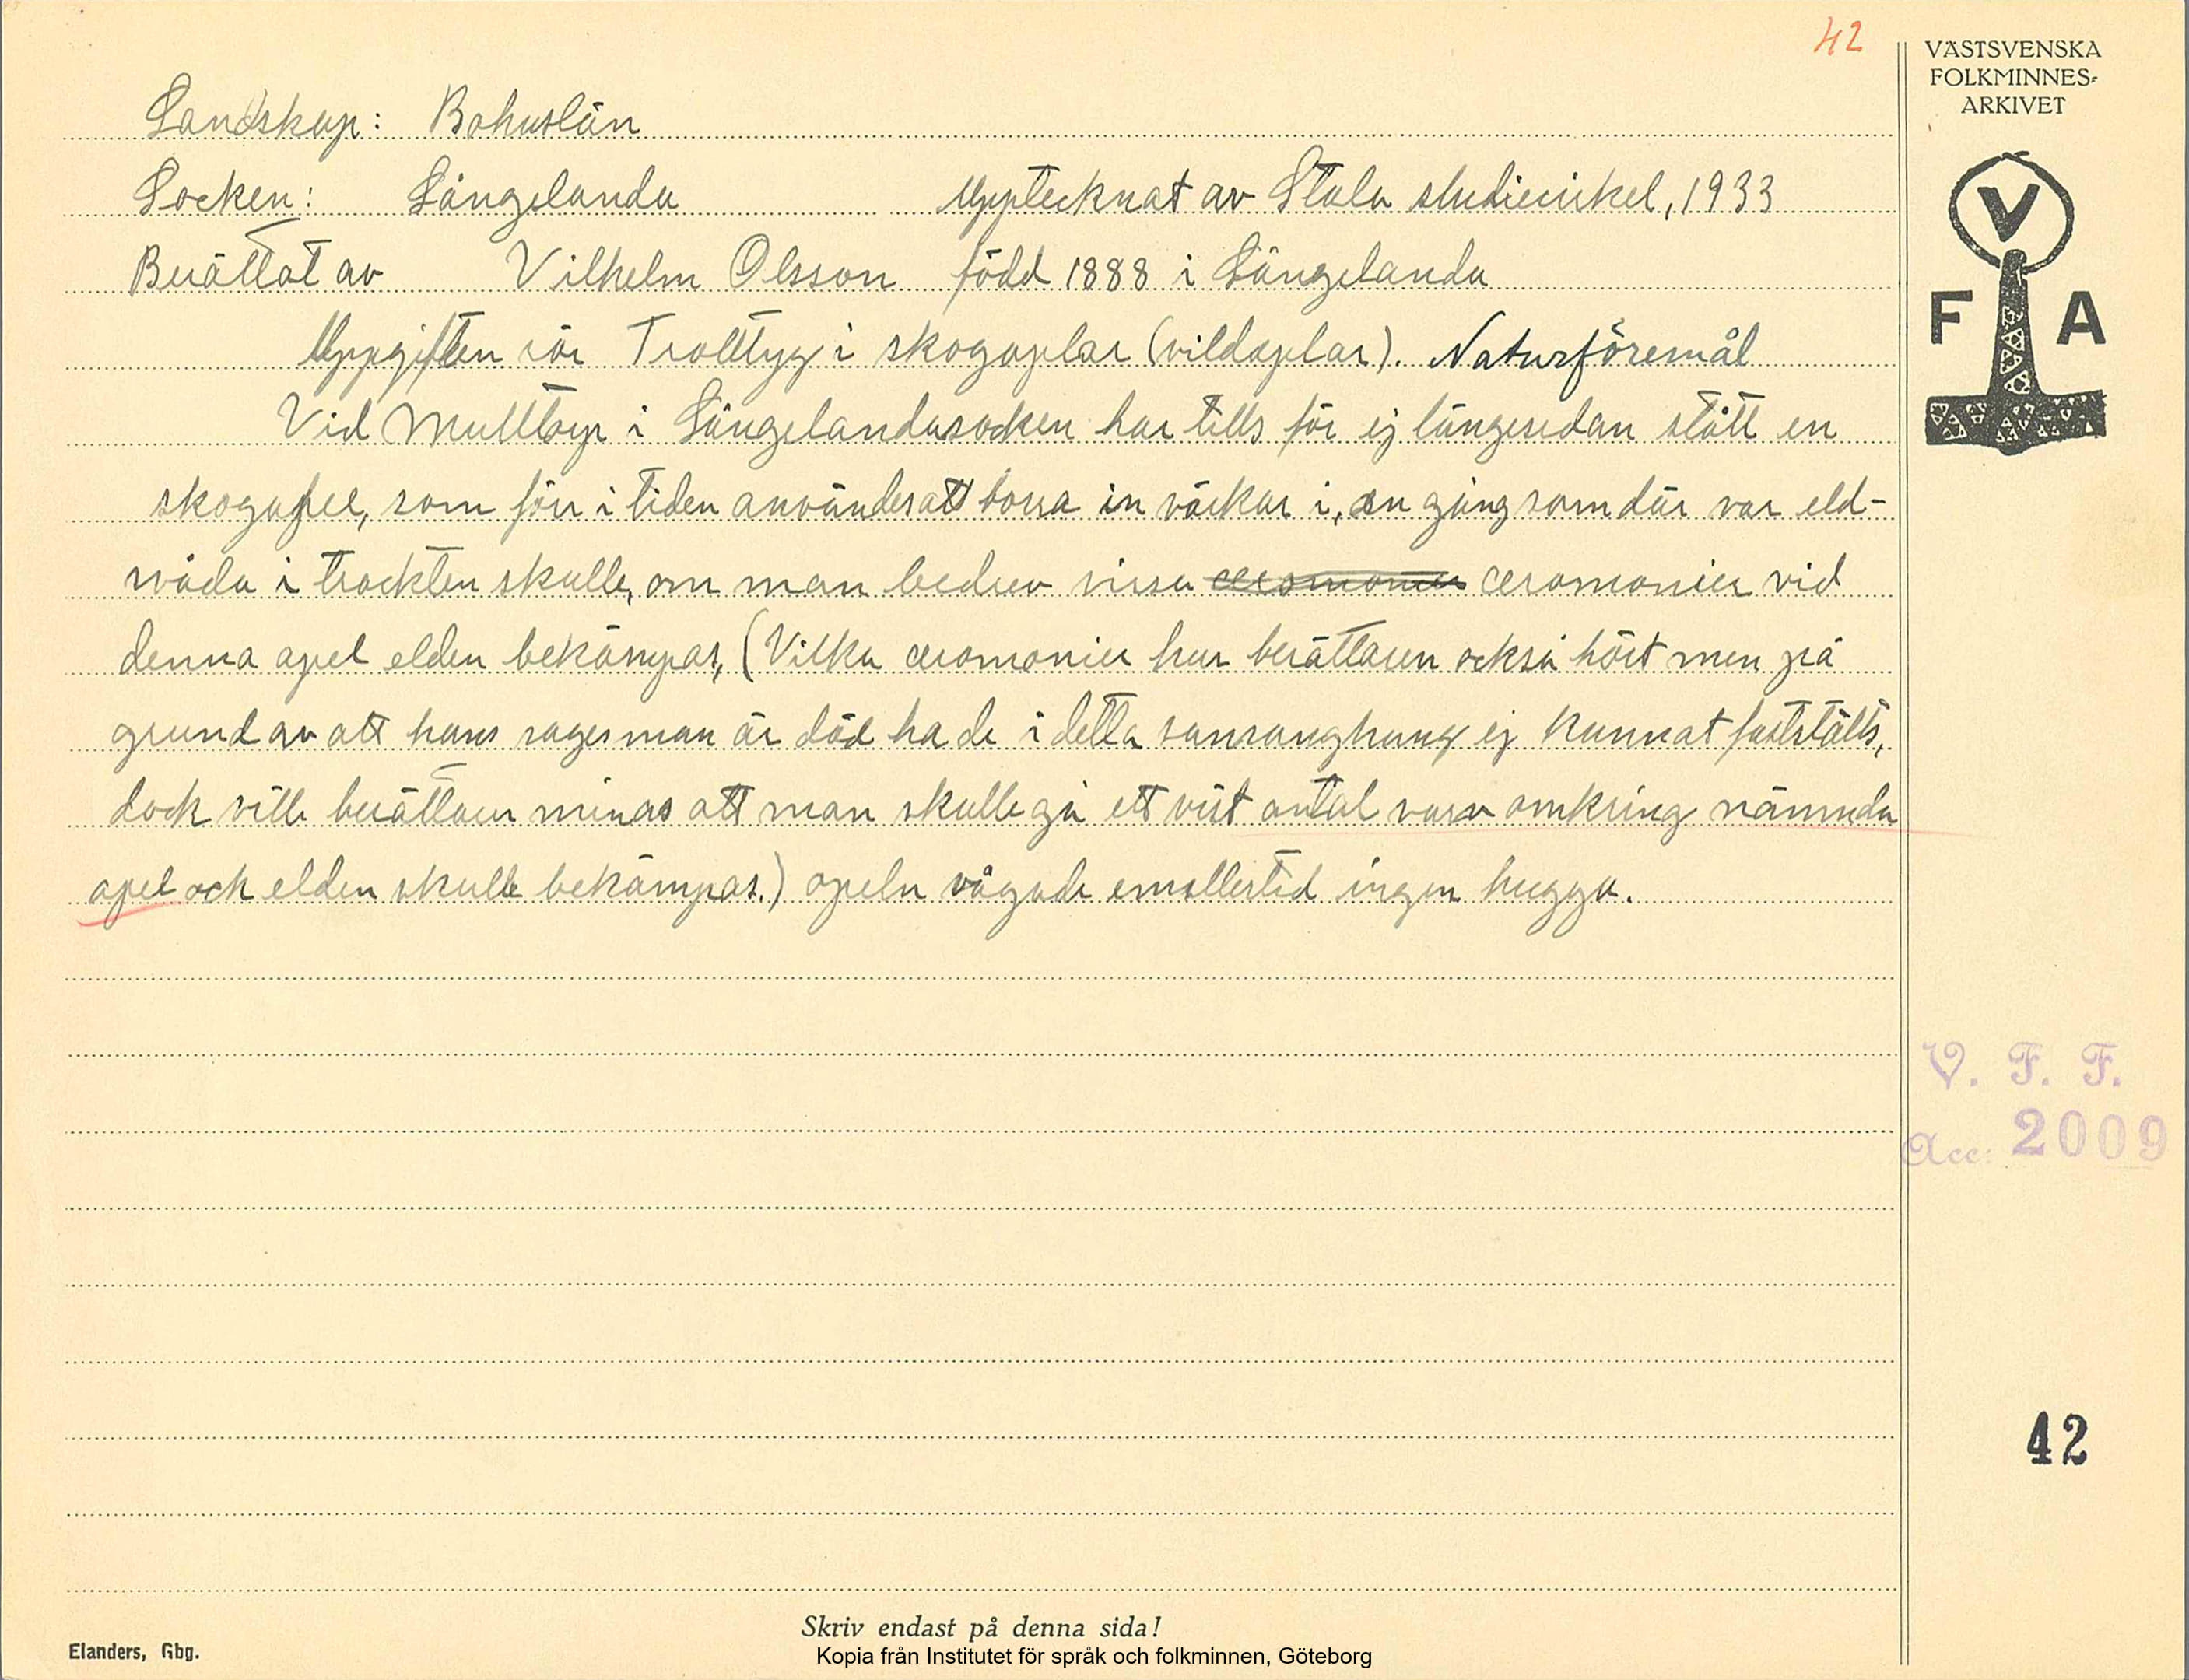 42
VÄSTSVENSKA
FOLKMINNES-
ARKIVET
V
F A
Landskap: Bohuslän
Socken: Långelanda Upptecknat av Stala studiecirkel, 1933
Berättat av Vilhelm Olsson född 1888 i Långelanda
Uppgiften rör Trolltyg i skogaplar (vildaplar). Naturföremål
Vid i Långelandasocken har tills för ej längesedan stått en
skogapel, som förr i tiden användes att borra in värkar i, en gång som där var eld-
våda i trackten skulle, om man bedrev vissa ceromonier ceromonier vid
denna apel elden bekämpas, (Vilka ceromonier har berättaren också hört men på
grund av att hans sagesman är död ha de i detta ej kunnat fastställts,
dock ville berättaren minas att man skulle gå ett vist antal varv omkring nämnda
apel och elden skulle bekämpas.) apeln vågade emellertid ingen hugga.
V. F. F.
Acc: 2009
42
Skriv endast på denna sida!
Elanders, Gbg.
Kopia från Institutet för språk och folkminnen, Göteborg